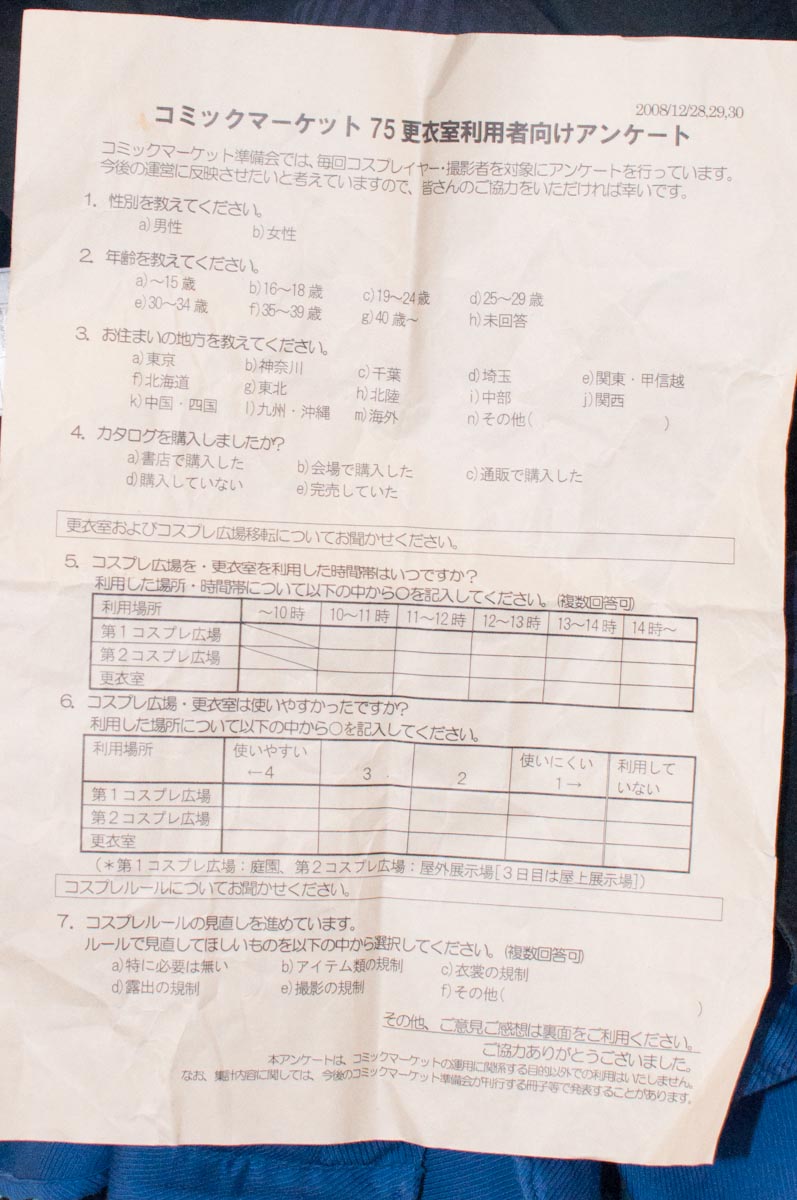 2008/12/28,29,30
コミックマーケット 75 更衣室利用者向けアンケート
コミックマーケット準備会では、毎回コスプレイヤー・撮影者を対象にアンケートを行っています。
今後の運営に反映させたいと考えていますので、皆さんのご協力をいただければ幸いです。
1. 性別を教えてください。
a)男性 b)女性
2. 年齢を教えてください。
a)～15歳 b)16～18歳 c)19～24歳 d)25～29歳
e)30～34歳 f)35～39歳 g)40歳～ h)未回答
3. お住まいの地方を教えてください。
a)東京 b)神奈川 c)千葉 d)埼玉 e)関東・甲信越
f)北海道 g)東北 h)北陸 i)中部 j)関西
k)中国・四国 l)九州・沖縄 m)海外 n)その他( )
4. カタログを購入しましたか?
a)書店で購入した b)会場で購入した c)通販で購入した
d)購入していない e)完売していた
更衣室およびコスプレ広場移転についてお聞かせください。
5. コスプレ広場を・更衣室を利用した時間帯はいつですか?
利用した場所・時間帯について以下の中から○を記入してください。(複数回答可)
利用場所 ～10時 10～11時 11～12時 12～13時 13～14時 14時～
第1コスプレ広場
第2コスプレ広場
更衣室
6. コスプレ広場・更衣室は使いやすかったですか?
利用した場所について以下の中から○を記入してください。
利用場所 使いやすい ←4 3 2 使いにくい 1→ 利用していない
第1コスプレ広場
第2コスプレ広場
更衣室
(＊第1コスプレ広場：庭園、第2コスプレ広場：屋外展示場[3日目は屋上展示場])
コスプレルールについてお聞かせください。
7. コスプレルールの見直しを進めています。
ルールで見直してほしいものを以下の中から選択してください。(複数回答可)
a)特に必要は無い b)アイテム類の規制 c)衣裳の規制
d)露出の規制 e)撮影の規制 f)その他( )
その他、ご意見ご感想は裏面をご利用ください。
ご協力ありがとうございました。
本アンケートは、コミックマーケットの運用に関係する目的以外での利用はいたしません。
なお、集計内容に関しては、今後のコミックマーケット準備会が刊行する冊子等で発表することがあります。